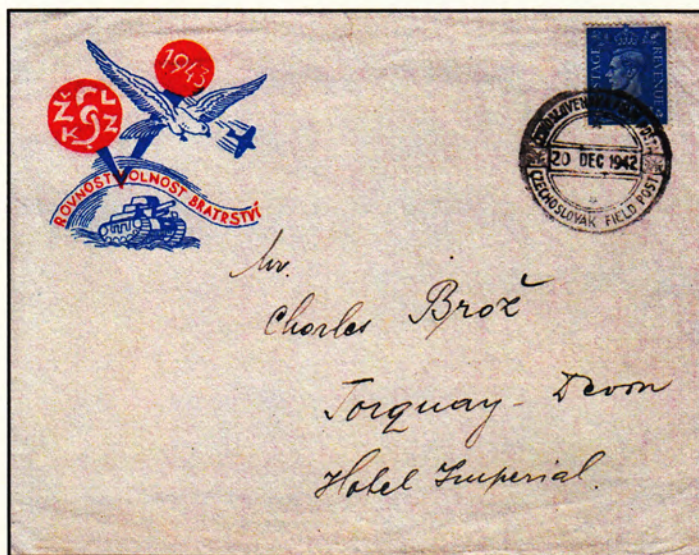 1943
ROVNOST VOLNOST BRATRSTVÍ
REVENUE
20 DEC 1942
CZECHOSLOVAK FIELD POST
Mr.
Charles Brož
Torquay - Devon
Hotel Imperial.